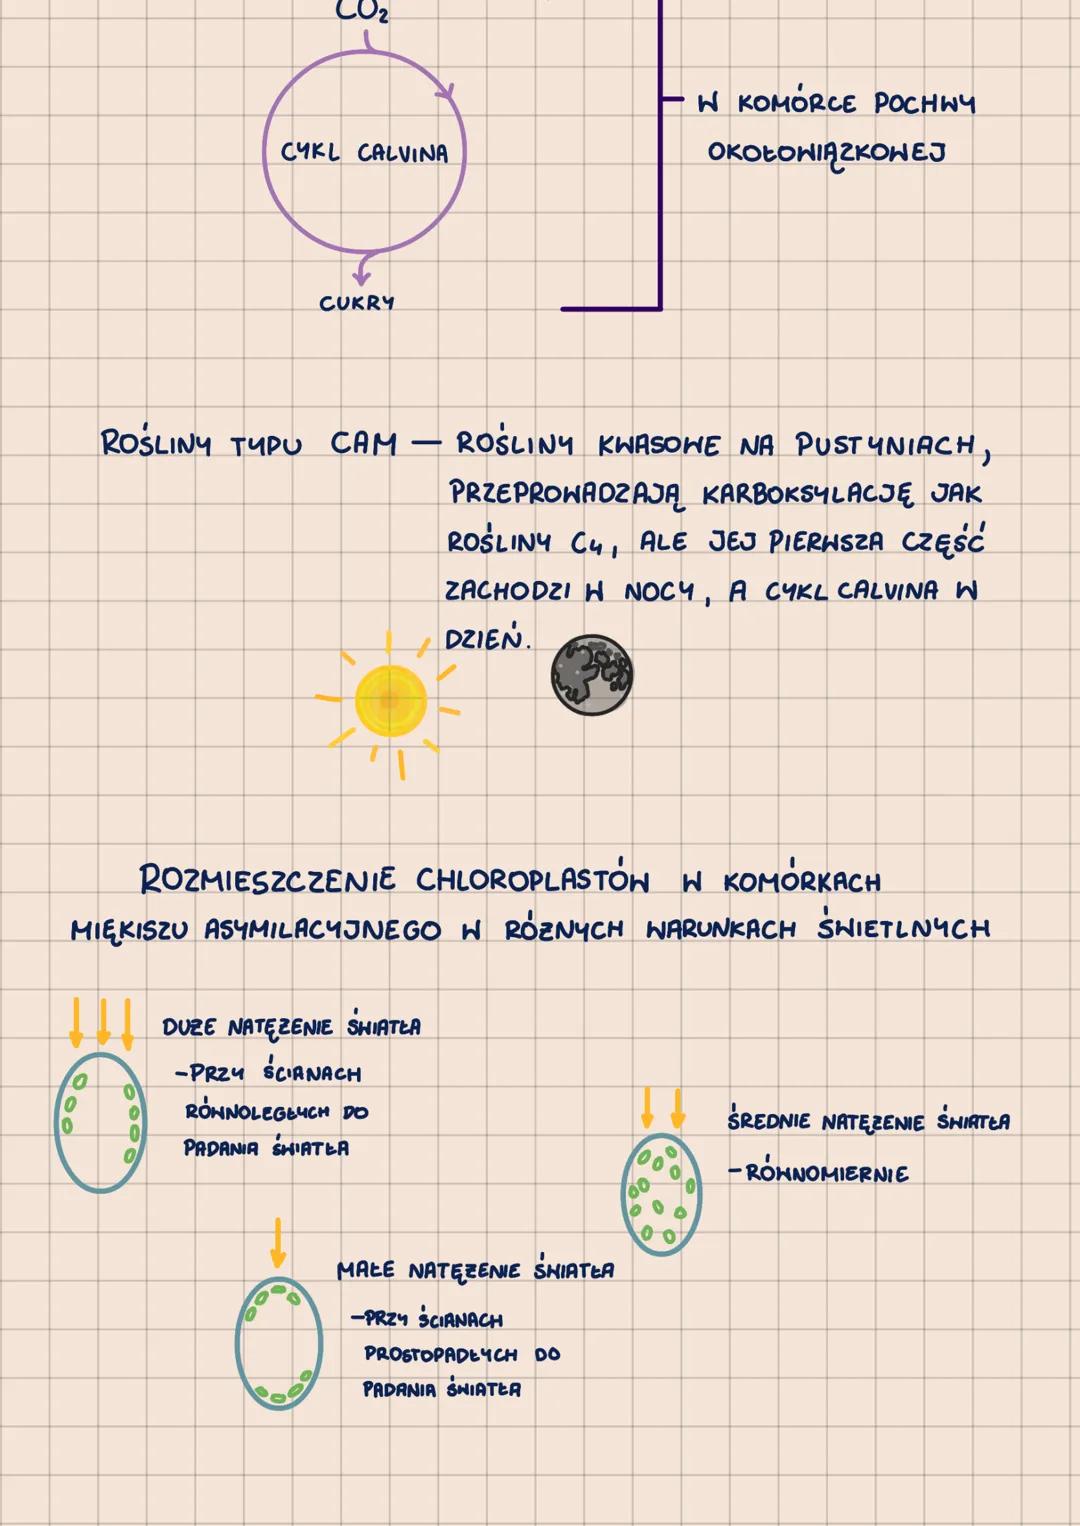 CO₂
CYKL CALVINA
CUKRY
W KOMÓRCE POCHWY
OKOŁOWIĄZKOWEJ
ROŚLINY TYPU CAM — ROŚLINY KWASOWE NA PUSTYNIACH,
PRZEPROWADZAJĄ KARBOKSYLACJĘ JAK
ROŚLINY C₄, ALE JEJ PIERWSZA CZĘŚĆ
ZACHODZI W NOCY, A CYKL CALVINA W
DZIEŃ.
ROZMIESZCZENIE CHLOROPLASTÓW W KOMÓRKACH
MIĘKISZU ASYMILACYJNEGO W RÓŻNYCH WARUNKACH ŚWIETLNYCH
DUŻE NATĘŻENIE ŚWIATŁA
-PRZY ŚCIANACH
RÓWNOLEGŁYCH DO
PADANIA ŚWIATŁA
ŚREDNIE NATĘŻENIE ŚWIATŁA
-RÓWNOMIERNIE
MAŁE NATĘŻENIE ŚWIATŁA
-PRZY ŚCIANACH
PROSTOPADŁYCH DO
PADANIA ŚWIATŁA